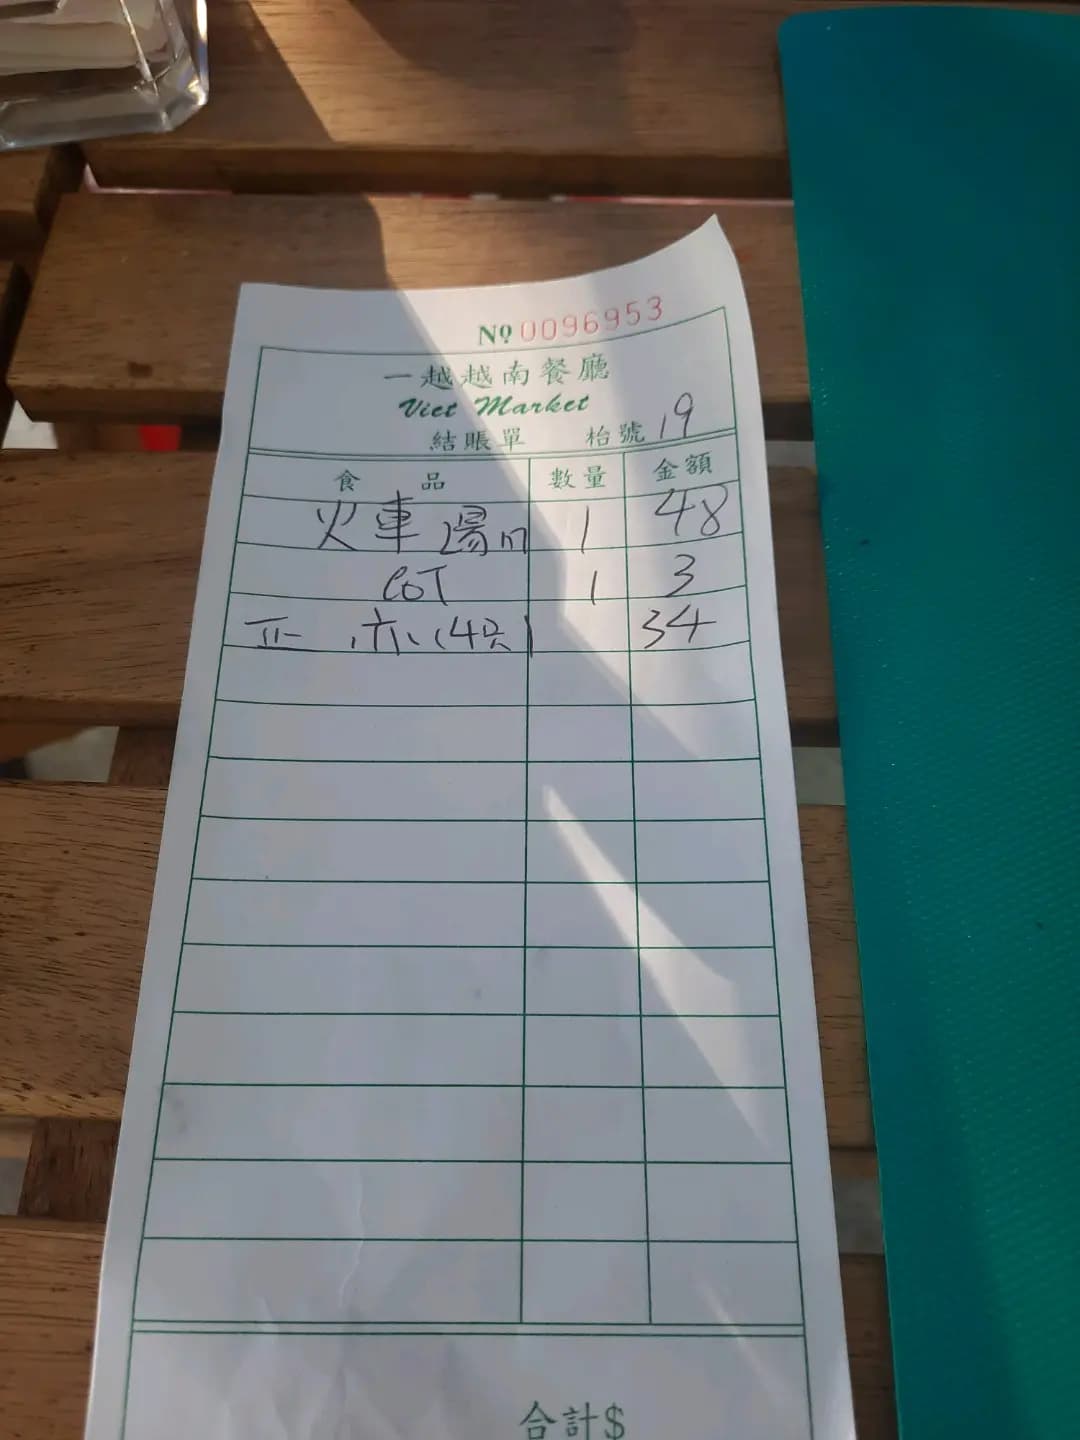 Nº 0096953
一越越南餐廳
Viet Market
結賬單 枱號 19
食品 數量 金額
火車 湯 1 48
COT 1 3
(4只) 34
合計$